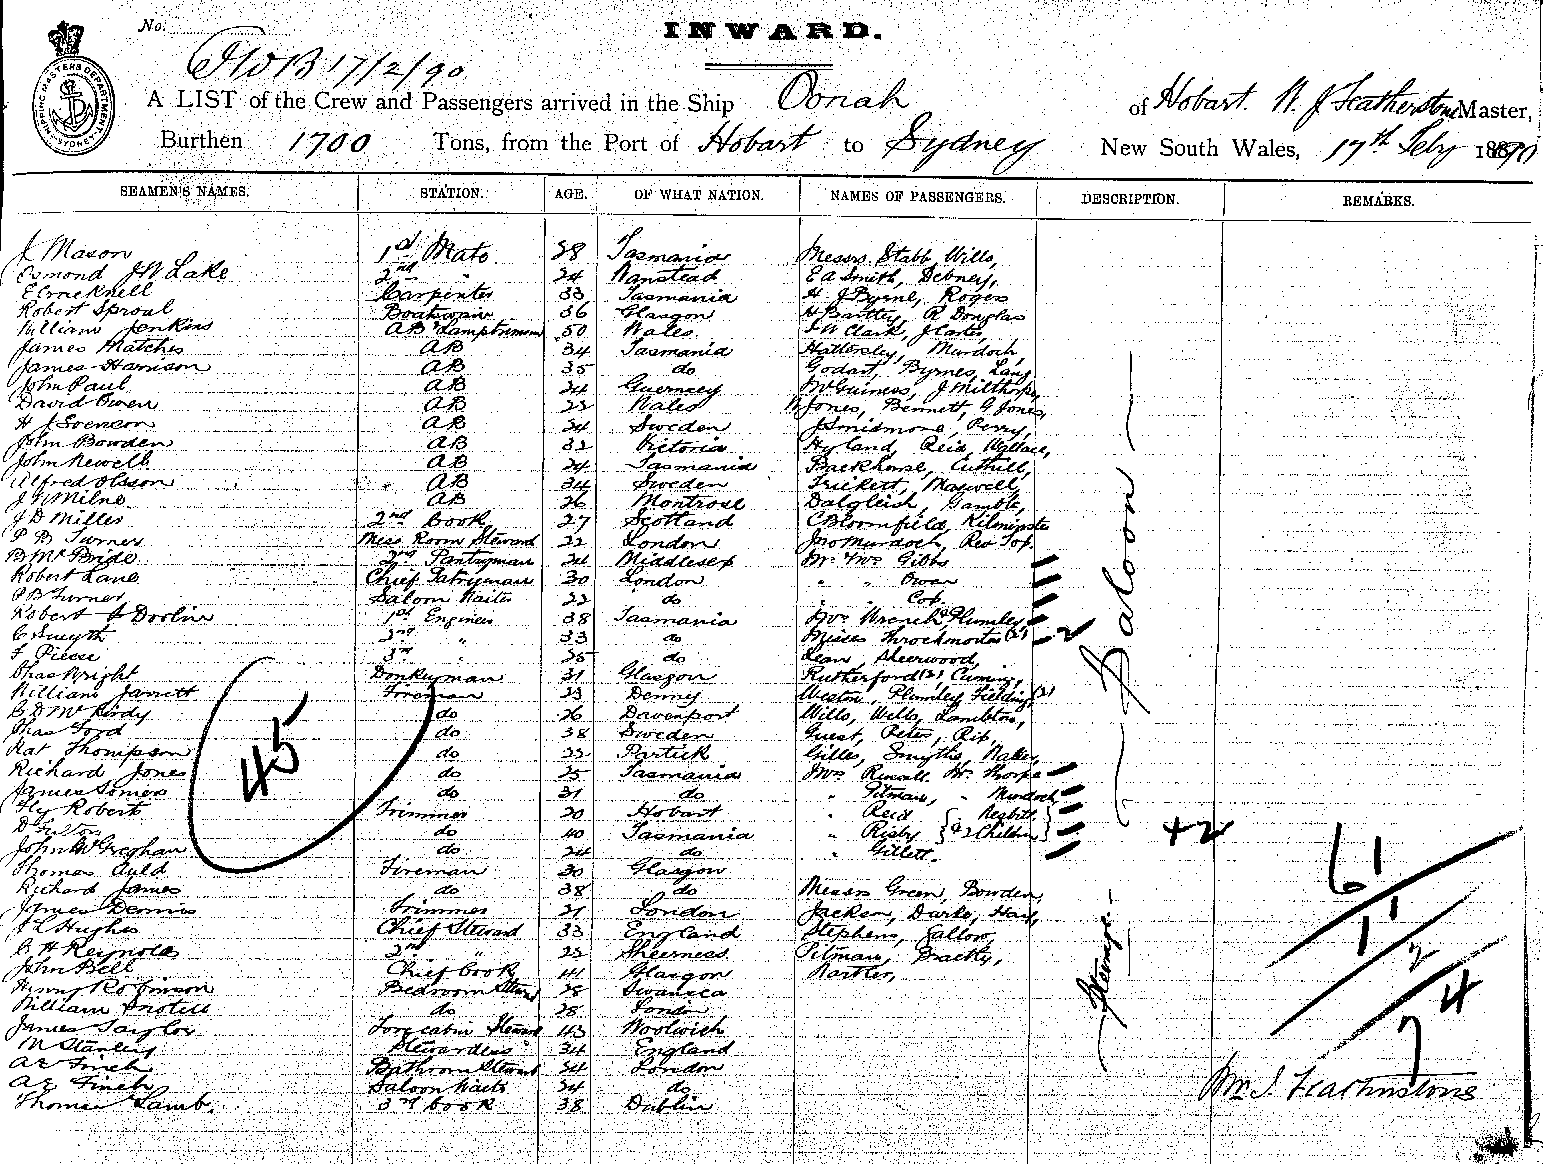 No.
INWARD.
17/2/90
SHIPPING MASTERS DEPARTMENT SYDNEY
A LIST of the Crew and Passengers arrived in the Ship Oonah of Hobart. W. J. Featherstone Master,
Burthen 1700 Tons, from the Port of Hobart to Sydney New South Wales, 17th Feby 1890
SEAMEN'S NAMES. STATION. AGE. OF WHAT NATION. NAMES OF PASSENGERS. DESCRIPTION. REMARKS.
J Mason 1st Mate 28 Tasmania Messrs. Stabb, Wills,
Osmond J W Lake 2nd " 24 Wanstead E A Smith, Debney,
E Cracknell Carpenter 33 Tasmania H J Byrne, Rogers
Robert Sproul Boatswain 36 Glasgow H Bartley, R Douglas
William Jenkins AB Lamptrimmer 50 Wales J W Clark, J Carter,
James Matches AB 34 Tasmania Hattersley, Murdoch,
James Harrison AB 35 do Godart, Byrnes, Lang
John Paul AB 24 Guernsey McGuiness, J Milthorpe,
David Owen AB 22 Wales W Jones, Bennett, G Jones,
H J Svenson AB 24 Sweden J Smidmore, Perry,
John Bowden AB 32 Victoria Hyland, Reid, Wallace,
John Newell AB 24 Tasmania Backhouse, Cuthill,
Alfred Olsson AB 34 Sweden Trickett, Maxwell,
J W Milne AB 26 Montrose Dalgleish, Gamble,
J D Miller 2nd Cook 27 Scotland C Bloomfield, Kilminster
P B Turner Mess Room Steward 22 London Jno Murdoch, Rev Top.
B McBride 2nd Pantryman 24 Middlesex Mr & Mrs Gibbs
Robert Lane Chief Patryman 30 London " " Owen
P B Turner Saloon Waiter 22 do " " Cox
Robert J Doolin 1st Engineer 38 Tasmania Mrs Wrench, Plumley
C Smyth 2nd " 33 do Misses Throckmorton (2) 2
F Piesse 3rd " 25 do Dean, Sherwood,
Chas Wright Donkeyman 31 Glasgow Rutherford (2), Cuming,
William Jarrett Fireman 23 Denney Weston, Plumley, Fielding (2)
C D McKirdy do 26 Davenport Wills, Wells, Lambton,
Chas Food do 38 Sweden Guest, Peter, Rix,
Nat Thompson do 22 Partick Gilles, Smythe,
Richard Jones do 25 Tasmania Mrs Russell Mr Thorpe
James Somers do 31 do " Pitman, " Murdoch,
Hy Roberts Trimmer 20 Hobart " Reid Nesbitt
D Fulton do 40 Tasmania " Risby & 2 Children
John McGreghan do 24 do " Gillett.
Thomas Auld Fireman 30 Glasgow
Richard James do 38 do Messrs Green, Bowden,
James Dennis Trimmer 21 London Jacken, Durke, Hay,
J L Hughes Chief Steward 33 England Stephens, Fallow,
C H Reynolds 2nd " 22 Sheerness Pitman, Bracky,
John Bell Chief Cook 41 Glasgow Hartler,
Henry Robinson Bedroom Steward 28 Swansea
William do 28 London
James Taylor Forecabin Steward 43 Woolwich
M Stanley Stewardess 34 England
A E Finch Bathroom Steward 24 London
A E Finch Saloon Waiter 24 do
Thomas Lamb. 3rd Cook 38 Dublin
45
Saloon
Steerage
+2
61
11
2
74
Wm. J. Featherstone